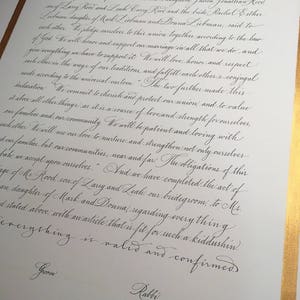 son of Larry Rood and Leah Curry Rood, and the bride, Rachel E
Liebman daughter of Mark Liebman and Donna Liebman, said to
other: "We pledge ourselves to this union together according to the law
of God. We will honor and support our marriage in all that we do, and
give everything we have to support it. We will love, honor and respect
each other in the ways of our tradition, and fulfill each other's conjugal
needs according to the universal custom." The two further made this
declaration: "We commit to cherish and protect our union, and to value
it above all other things, as it is a source of love and strength for ourselves,
our families and our community. We will be patient and loving with
each other. We will use our love to nurture and strengthen not only ourselves
and our families, but our communities, near and far. The obligations of this
we accept upon ourselves." And we have completed the act of
of R. Rood, son of Larry and Leah, our bridegroom, to Ms.
daughter of Mark and Donna, regarding everything
stated above, with an article that is fit for such a kiddushin.
everything is valid and confirmed
Groom
Rabbi